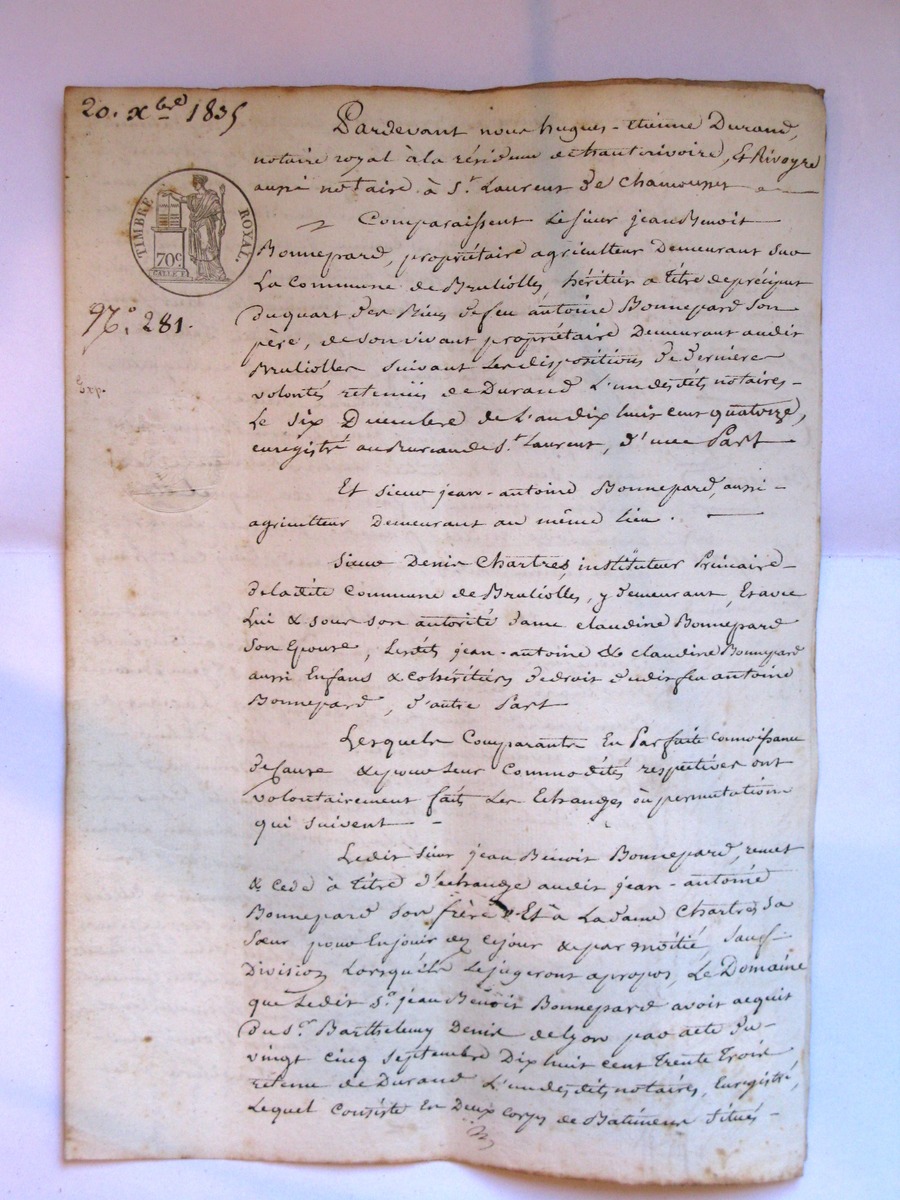 20. xbre 1835
Pardevant nous hugues-etienne Durand,
notaire royal à la résidence de hauterivoire, Et Rivoyre
aussi notaire à St. Laurent de Chamousset
Comparaissent Le sieur jean Benoit
Bonnepard, propriétaire agriculteur Demeurant sur
La Commune de Brulioles, héritier a titre de préciput
Du quart des Biens de feu antoine Bonnepard son
père, de son vivant propriétaire Demeurant audit
Brulioles suivant les dispositions de dernière
volontés retenues de Durand L'un desdits notaires
Le six Decembre de L'an dix huit cent quatorze,
enregistré au Bureau de St. Laurent, d'une Part
Et sieur jean-antoine Bonnepard, aussi
agriculteur Demeurant au même lieu.
Sieur Denis Chartres, instituteur Primaire
de ladite Commune de Brulioles, y demeurant, Et avec
Lui & sous son autorité dame claudine Bonnepard
son Epouse, Lesdits jean-antoine & claudine Bonnepard
aussi Enfans & cohéritiers de droit dudit feu antoine
Bonnepard, d'autre Part
Lesquels Comparants En Parfaite connoissance
de Cause & pour leur Commodités respectives ont
volontairement fait Les Echanges ou permutations
qui suivent
Ledit sieur jean Benoit Bonnepard, remet
& cede à titre d'échange audit jean-antoine
Bonnepard son frère & Et à La dame Chartres sa
sœur pour En jouir dez cejour & par moitié, sauf
Division Lorsqu'ils Le jugeront apropos, Le Domaine
que Ledit Sr. jean Benoit Bonnepard avoit acquit
Du Sr. Barthelemy Denis de Lyon par acte du
vingt cinq septembre Dix huit cent trente trois
retenu de Durand L'un desdits notaires, Enregistré,
Lequel Consiste En Deux corps de Batimens situés
TIMBRE ROYAL.
70c.
No. 281.
Exp.